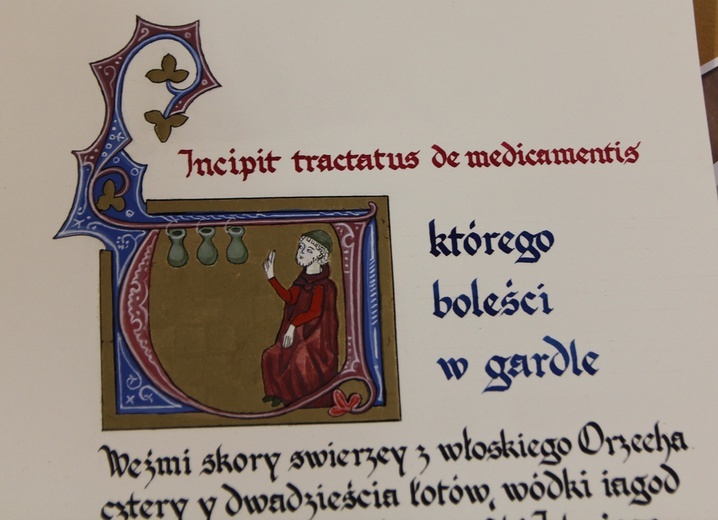 Incipit tractatus de medicamentis
którego
boleści
w gardle
Weźmi skory swierzey z włoskiego Orzecha
cztery y dwadzieścia łotów, wódki iagod